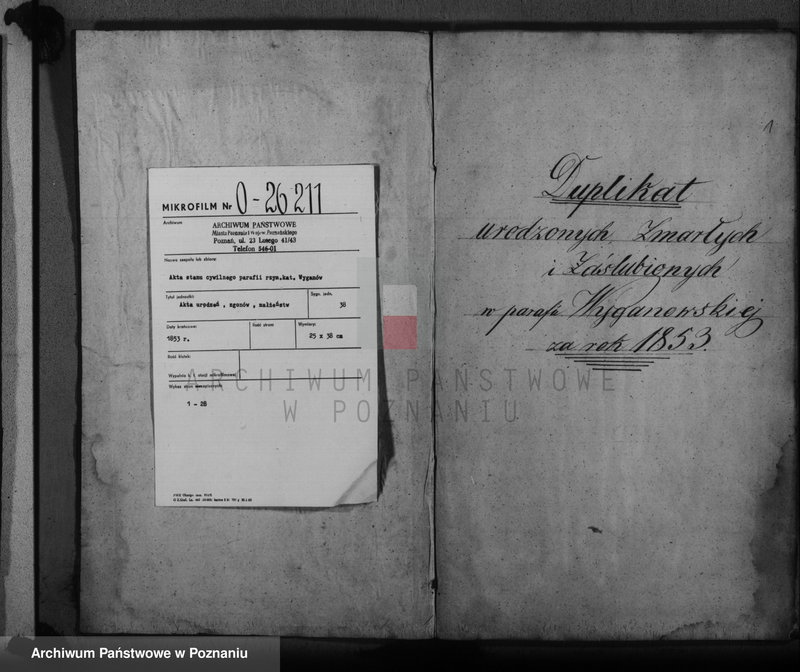 MIKROFILM Nr 0-26 211
Archiwum
ARCHIWUM PAŃSTWOWE
Miasta Poznania i Wojew. Poznańskiego
Poznań, ul. 23 Lutego 41/43
Telefon 546-01
Nazwa zespołu lub zbioru:
Akta stanu cywilnego parafii rzym.kat. Wyganów
Tytuł jednostki:
Sygn. jedn.
Akta urodzeń , zgonów , małżeństw
38
Daty krańcowe:
Ilość stron:
Wymiary:
1853 r.
25 x 38 cm
Ilość klatek:
1 - 28
1
Duplikat
urodzonych, Zmarłych
i Zaślubionych
w parafii Wyganowskiej
za rok 1853.
ARCHIWUM PAŃSTWOWE
W POZNANIU
Archiwum Państwowe w Poznaniu